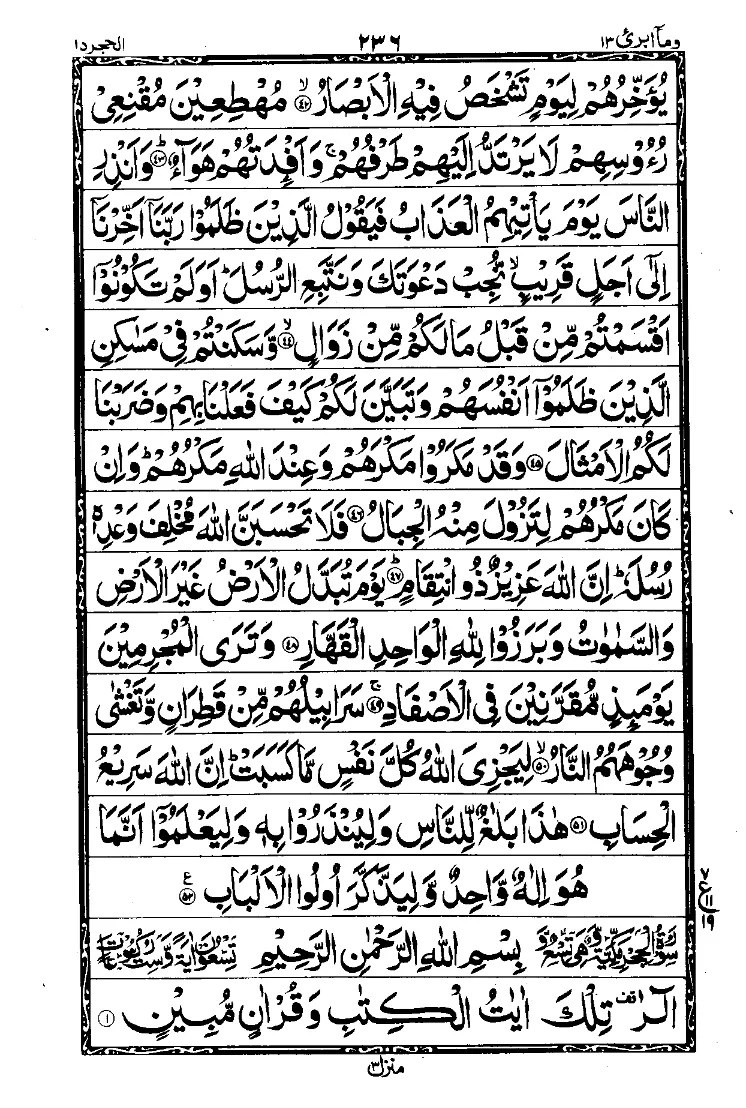 وما ابرئ ١٣ ٢٣٦ الحجر ١٥
يُؤَخِّرُهُمْ لِيَوْمٍ تَشْخَصُ فِيْهِ الْاَبْصَارُ ۙ‏﴿۴۲﴾ مُهْطِعِيْنَ مُقْنِعِىْ
رُءُوْسِهِمْ لَا يَرْتَدُّ اِلَيْهِمْ طَرْفُهُمْ ۚ وَاَفْـِٕدَتُهُمْ هَوَآءٌ ؕ‏﴿۴۳﴾ وَاَنْذِرِ
النَّاسَ يَوْمَ يَاْتِيْهِمُ الْعَذَابُ فَيَقُوْلُ الَّذِيْنَ ظَلَمُوْا رَبَّنَاۤ اَخِّرْنَاۤ
اِلٰٓى اَجَلٍ قَرِيْبٍ ۙ نُّجِبْ دَعْوَتَكَ وَنَتَّبِعِ الرُّسُلَ ؕ اَوَلَمْ تَكُوْنُوْۤا
اَقْسَمْتُمْ مِّنْ قَبْلُ مَا لَكُمْ مِّنْ زَوَالٍ ۙ‏﴿۴۴﴾ وَّسَكَنْتُمْ فِىْ مَسٰكِنِ
الَّذِيْنَ ظَلَمُوْۤا اَنْفُسَهُمْ وَتَبَيَّنَ لَكُمْ كَيْفَ فَعَلْنَا بِهِمْ وَضَرَبْنَا
لَكُمُ الْاَمْثَالَ‏﴿۴۵﴾ وَقَدْ مَكَرُوْا مَكْرَهُمْ وَعِنْدَ اللّٰهِ مَكْرُهُمْ ؕ وَاِنْ
كَانَ مَكْرُهُمْ لِتَزُوْلَ مِنْهُ الْجِبَالُ‏﴿۴۶﴾ فَلَا تَحْسَبَنَّ اللّٰهَ مُخْلِفَ وَعْدِهٖ
رُسُلَهٗ ؕ اِنَّ اللّٰهَ عَزِيْزٌ ذُو انْتِقَامٍ ؕ‏﴿۴۷﴾ يَوْمَ تُبَدَّلُ الْاَرْضُ غَيْرَ الْاَرْضِ
وَالسَّمٰوٰتُ وَبَرَزُوْا لِلّٰهِ الْوَاحِدِ الْقَهَّارِ‏﴿۴۸﴾ وَتَرَى الْمُجْرِمِيْنَ
يَوْمَٮِٕذٍ مُّقَرَّنِيْنَ فِى الْاَصْفَادِ ۚ‏﴿۴۹﴾ سَرَابِيْلُهُمْ مِّنْ قَطِرَانٍ وَّتَغْشٰى
وُجُوْهَهُمُ النَّارُ ۙ‏﴿۵۰﴾ لِيَجْزِىَ اللّٰهُ كُلَّ نَفْسٍ مَّا كَسَبَتْ ؕ اِنَّ اللّٰهَ سَرِيْعُ
الْحِسَابِ‏﴿۵۱﴾ هٰذَا بَلٰغٌ لِّلنَّاسِ وَلِيُنْذَرُوْا بِهٖ وَلِيَعْلَمُوْۤا اَنَّمَا
هُوَ اِلٰهٌ وَّاحِدٌ وَّلِيَذَّكَّرَ اُولُوا الْاَلْبَابِ‏﴿۵۲﴾ ع
٧ ع ١١ ١٩
سُوْرَةُ الْحِجْرِ مَكِّيَّةٌ وَّهِىَ تِسْعٌ وَّ بِسْمِ اللّٰهِ الرَّحْمٰنِ الرَّحِيْمِ تِسْعُوْنَ اٰيَةً وَّسِتُّ رُكُوْعَاتٍ
الٓرٰ ۟ تِلْكَ اٰيٰتُ الْكِتٰبِ وَقُرْاٰنٍ مُّبِيْنٍ ﴿۱﴾
منزل ٣